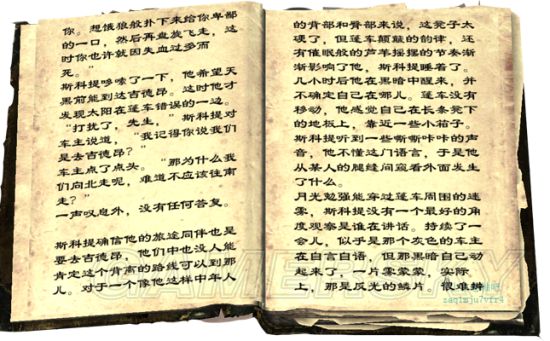 你。想饿狼般扑下来给你卑鄙
的一口，然后再盘旋飞走，这
时你也许就因失血过多而
死。”
斯科提哆嗦了一下，他希望天
黑前能到达吉德昂。这时他才
发现太阳在蓬车错误的一边。
“打扰了，先生，”斯科提对
车主说道，“我记得你说我们
是去吉德昂？”
车主点了点头。“那为什么我
们向北走呢，难道不应该往南
走？”
一声叹息外，没有任何答复。
斯科提确信他的旅途同伴也是
要去吉德昂。他们中也没人能
肯定这个背离的路线可以到那
儿。对于一个像他这样中年人
的背部和臀部来说，这凳子太
硬了，但蓬车颠簸的韵律，还
有催眠般的芦苇摇摆的节奏渐
渐影响了他，斯科提睡着了。
几小时后他在黑暗中醒来，并
不确定自己在哪儿。蓬车没有
移动，他感觉自己在长条凳下
的地板上，靠近一些小箱子。
斯科提听到一些嘶嘶咔咔的声
音，他不懂这门语言，于是他
从某人的腿缝间窥看外面发生
了什么。
月光勉强能穿过蓬车周围的迷
雾，斯科提没有一个最好的角
度观察是谁在讲话。持续了一
会儿，似乎是那个灰色的车主
在自言自语，但那黑暗自己动
起来了，一片雾蒙蒙，实际
上，那是反光的鳞片。很难辨
zaq1mju7vfr4